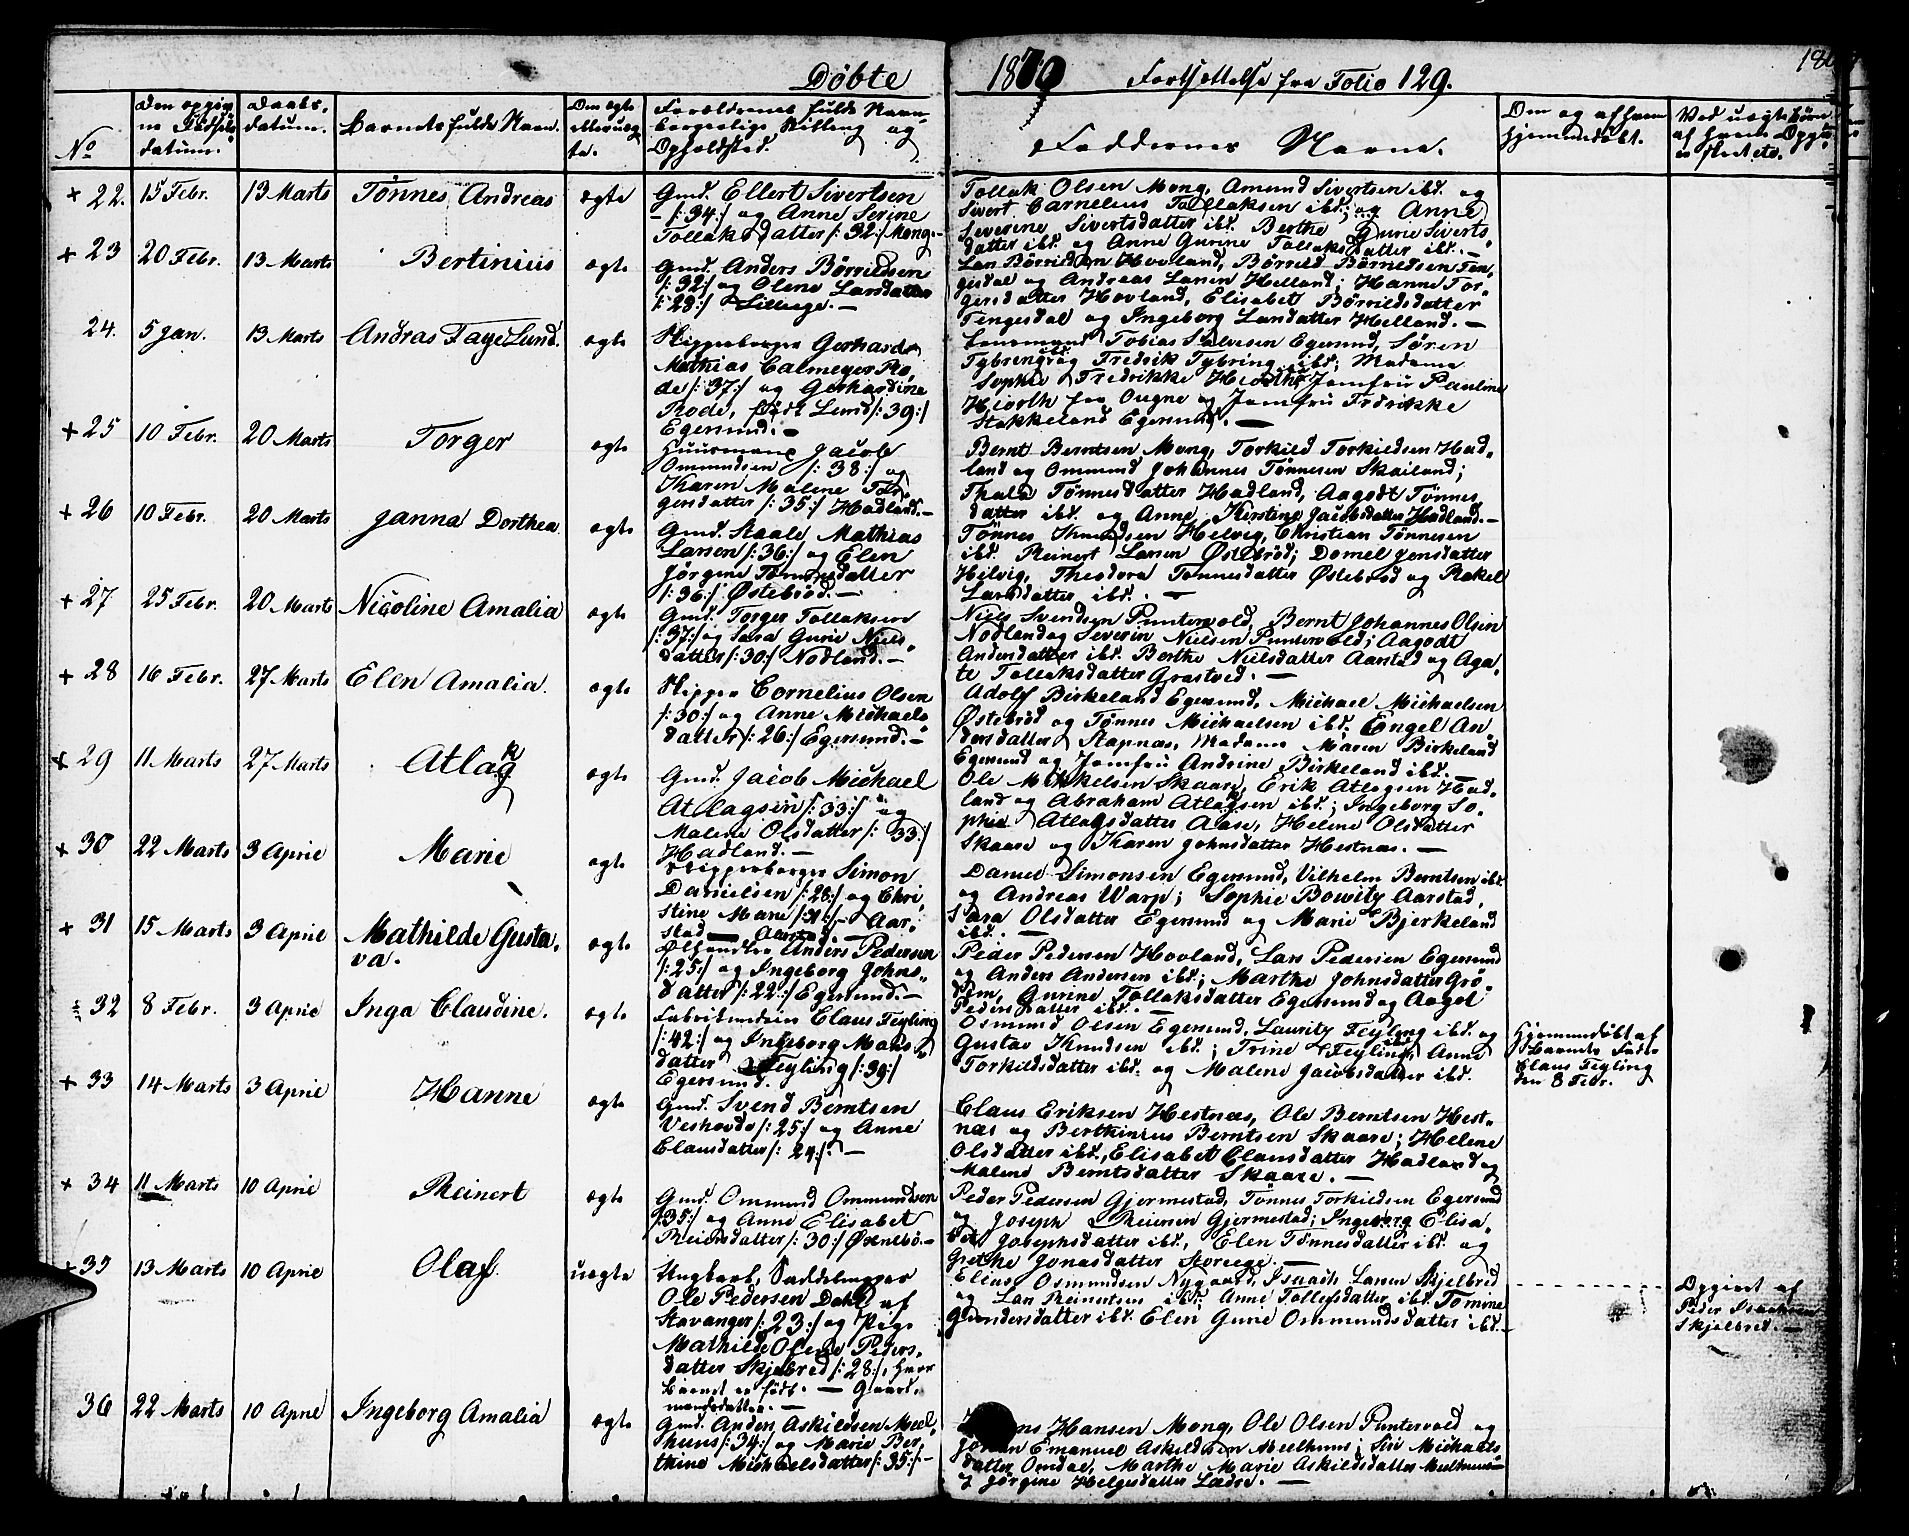 Døbte 1870 Fortsættelse fra Folio 129.
No
Den opgiv
ne Fødsels
datum.
Daabs
datum.
Barnets fulde Navn.
Om ægte
eller uæg
te.
Forældrenes fulde Navn
borgerlige Stilling og
Opholdsted.
Faddernes Navne.
Om og af hvem
hjemmedøbt.
Ved uægte Børn
af hvem Opgi
+ 22. 15 Febr. 13 Marts Tønnes Andreas ægte
Gmd. Ellert Sivertsen
/:34:/ og Anne Serine
Tollaksdatter /:32:/ Mong.
Tollak Olsen Mong, Amund Sivertsen ibd. og
Sivert Cornelius Tollaksen ibd; og Anne
Severine Sivertsdatter ibd. Berthe Gurie Siverts
datter ibd. og Anne Gurine Tollaksdatter ibd.
+ 23 20 Febr. 13 Marts Bertinius ægte
Gmd. Anders Børrildsen
/:32:/ og Olene Larsdatter
/:28:/
Lars Børrildsen Hovland, Børrild Børrildsen Ten
gesdal og Andreas Larsen Helland; Hanne Tor
gersdatter Hovland, Elisabet Børrildsdatter
Tengesdal og Ingeborg Larsdatter Helland.
24. 5 Jan. 13 Marts Andras Faye Lund. ægte
Skipperborger Gerhard
Mathias Calmeyer Ro
de /:37:/ og Gerhardine
Rode, født Lund /:39:/
Egersund.
Lensmand Tobias Salvesen Egersund, Søren
Tybring ibd. og Fredrik Tybring ibd; Madame
Sophie Fredrikke Hiorth, Jomfru Pauline
Hiorth fra Ougne og Jomfru Fredrikke
Stokkeland Egersund.
+ 25 10 Febr. 20 Marts Torger ægte
Huusmand Jacob
Ommundsen /:38:/ og
Karen Malene Tor
gersdatter /:35:/ Hadland.
Bernt Berntsen Mong, Torkild Torkildsen Had
land og Ommund Johannes Tønnesen Skailand;
Thala Tønnesdatter Hadland, Aagodt Tønnes
datter ibd. og Anne Kirstine Jacobsdatter Hadland.
+ 26 10 Febr. 20 Marts Janna Dorthea ægte
Gmd. Staale Mathias
Larsen /:36:/ og Elen
Jørgine Tønnesdatter
/:36:/ Østebrød.
Tønnes Knudsen Helvig, Christian Tønnesen
ibd. Reinert Larsen Østebrød; Domel Jensdatter
Helvig, Theodora Tønnesdatter Østebrød og Rakel
Larsdatter ibd.
+ 27 25 Febr. 20 Marts Nicoline Amalia ægte
Gmd. Torger Tollaksen
/:37:/ og Sara Gurie Niels
datter /:30:/ Nodland.
Niels Svendsen Puntervold, Bernt Johannes Olsen
Nodland og Severin Nielsen Puntervold; Aagodt
Andersdatter ibd. Berthe Nielsdatter Aarstad og Aga
te Tollaksdatter Grastved.
+ 28 16 Febr. 27 Marts Elen Amalia. ægte
Skipper Cornelius Olsen
/:30:/ og Anne Michaels
datter /:26:/ Egersund.
Adolf Birkeland Egersund, Michael Michaelsen
Østebrød og Tønnes Michaelsen ibd. Engel An
dersdatter Stapnæs, Madame Maren Birkeland
Egersund og Jomfru Andrine Birkeland ibd.
+ 29 11 Marts 27 Marts Atlag ægte
Gmd. Jacob Michael
Atlagsen /:33:/ og
Malene Olsdatter /:33:/
Hadland.
Ole Mikkelsen Skaare, Erik Atlagsen Had
land og Abraham Atlagsen ibd.; Ingeborg So
phie Atlagsdatter Aase, Helene Olsdatter
Skaare og Karen Johnsdatter Hestnæs.
+ 30 22 Marts 3 April Marie ægte
Skipperborger Simon
Danielsen /:28:/ og Chri
stine Marie /:31:/ Aar
stad
Daniel Simonsen Egersund, Vilhelm Berntsen ibd.
og Andreas Warp; Sophie Bowitz Aarstad,
Sara Olsdatter Egersund og Marie Bjerkeland
ibd.
+ 31 15 Marts 3 April Mathilde Gusta
va. ægte
Anders Pedersen
/:25:/ og Ingeborg Johns
datter /:22:/ Egersund.
Peder Pedersen Hovland, Lars Pedersen Egersund
og Anders Andersen ibd.; Marthe Johnsdatter Grø
dem, Gurine Tollaksdatter Egersund og Aagot
Pedersdatter ibd.
32 8 Febr. 3 April Inga Claudine. ægte
Claus Feyling
/:42:/ og Ingeborg Mans
datter Feyling /:39:/
Egersund.
Osmund Olsen Egersund, Lauritz Feyling ibd. og
Gustav Knudsen ibd.; Trine Feyling ibd, Anne
Torkildsdatter ibd. og Malene Jacobsdatter ibd.
Hjemmedøbt af
Barnets Fader
Claus Feyling
den 8 Febr.
+ 33 14 Marts 3 April Hanne ægte
Gmd. Svend Berntsen
Veshovde /:25:/ og Anne
Clausdatter /:24:/.
Claus Eriksen Hestnæs, Ole Berntsen Hest
næs og Berthinius Berntsen Skaare; Helene
Olsdatter ibd., Elisabet Clausdatter Hadland og
Malene Berntsdatter Skaare.
+ 34 11 Marts 10 April Reinert ægte
Gmd. Ommund Ommundsen
/:35:/ og Anne Elisabet
Reiersdatter /:30:/
Peder Pedersen Gjermestad, Tønnes Torkildsen Egersund
og Joseph Reiersen Gjermestad; Ingeborg Elisa
bet Josephsdatter ibd., Elen Tønnesdatter ibd. og
Grethe Jonasdatter
+ 35 13 Marts 10 April Olaf. uægte
Ungkarl, Saddelmager
Ole Pedersen Dahl af
Stavanger /:23:/ og Pige
Mathilde Olene Peders
datter Skjelbred /:28:/, hvor
Barnet er født. Gaard
mandsdatter.
Elias Osmundsen Nygaard, Isaach Larsen Skjelbred
og Lars Reinertsen ibd; Anne Tollefsdatter ibd. Tomine
Gundersdatter ibd. Elen Gurie Ommundsdatter ibd.
Opgivet af
Peder Isachsen
Skjelbred.
36 22 Marts 10 April Ingeborg Amalia ægte
Gmd. Anders Askildsen Meel
huus /:34:/ og Marie Ber
thine Michaelsdatter /:35:/
Hansen Mong, Ole Olsen Puntervold og
Johan Emanuel Askildsen Meelhuus; Siri Michaels
datter Omdal, Marthe Marie Askildsdatter Meelhuus
og Jørgine Helgesdatter Ladre.